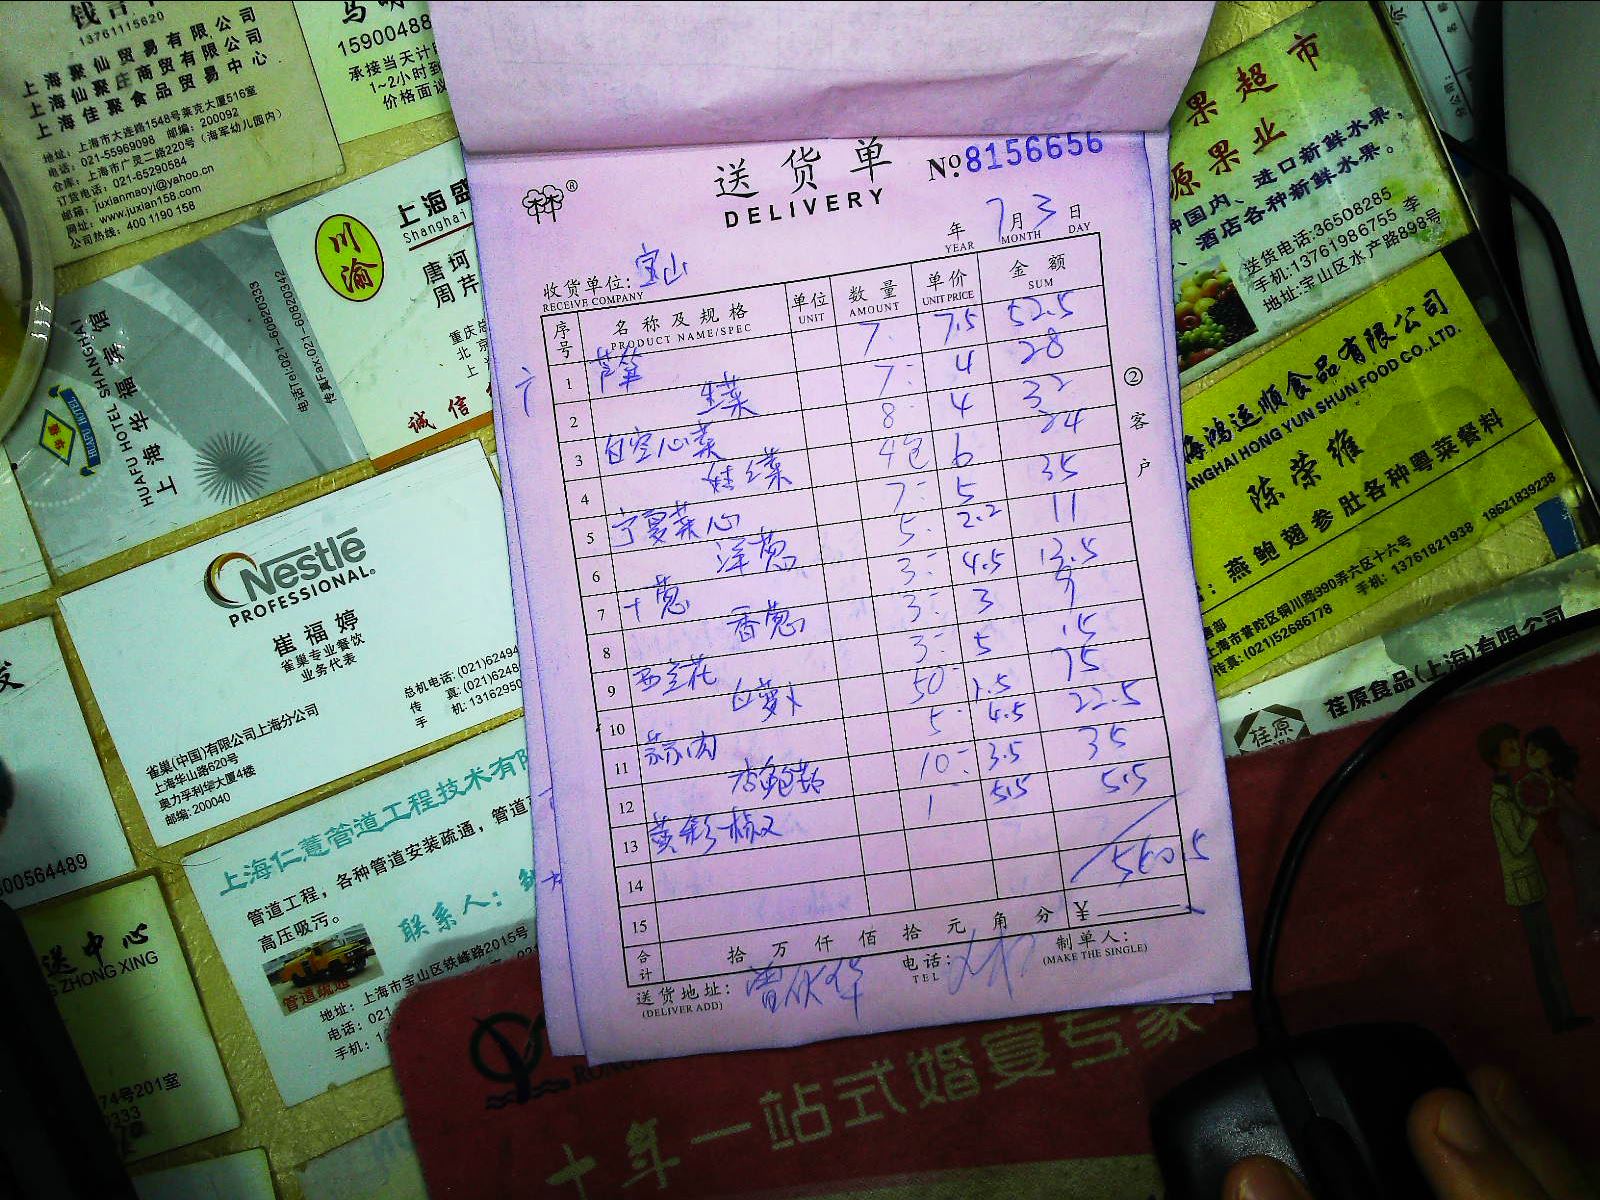 13761115620
上海聚仙贸易有限公司
上海仙聚庄商贸有限公司
上海佳聚食品贸易中心
地址：上海市大连路1548号莱克大厦516室
电话：021-55969098 邮编：200092
仓库：上海市广灵二路220号（海军幼儿园内）
订货电话：021-65290584
邮箱：juxianmaoyi@yahoo.cn
网址：www.juxian158.com
公司热线：400 1190 158
15900488
承接当天计
1~2小时到
价格面议
川渝
上海盛
Shanghai
唐珂
周芹
重庆总
北京
上
诚信
HUAFU HOTEL
HUAFU HOTEL SHANGHAI
上海华福宾馆
电话Tel:021-60820333
传真Fax:021-60820342
Nestlé
PROFESSIONAL.
崔福婷
雀巢专业餐饮
业务代表
雀巢(中国)有限公司上海分公司
上海华山路620号
奥力孚利华大厦4楼
邮编: 200040
总机电话: (021)6249
传 真: (021)6248
手 机: 13162950
00564489
上海仁薏管道工程技术有限
管道工程，各种管道安装疏通，管道
高压吸污。
联系人：
管道疏通
地址：上海市宝山区铁峰路2015号
电话：021
手机：1
送中心
ZHONG XING
74号201室
0333
送货单
DELIVERY
№ 8156656
7月3日
年 YEAR MONTH DAY
收货单位: 宝山
RECEIVE COMPANY
序号 名称及规格 单位 数量 单价 金额
PRODUCT NAME/SPEC UNIT AMOUNT UNIT PRICE SUM
1 芦笋 7 7.5 52.5
2 生菜 7 4 28
3 白空心菜 8 4 32
4 娃娃菜 4包 6 24
5 宁夏菜心 7 5 35
6 洋葱 5 2.2 11
7 干葱 3 4.5 13.5
8 香葱 3 3 9
9 西兰花 3 5 15
10 白萝卜 50 1.5 75
11 蒜肉 5 4.5 22.5
12 杏鲍菇 10 3.5 35
13 黄彩椒 1 5.5 5.5
14
15
合计 拾万仟佰拾元角分 ¥
送货地址:
(DELIVER ADD)
电话:
TEL
制单人:
(MAKE THE SINGLE)
②客户
果超市
源果业
种国内、进口新鲜水果。
酒店各种新鲜水果。
送货电话:36508285
手机:13761986755 李
地址:宝山区水产路898号
海鸿运顺食品有限公司
ANGHAI HONG YUN SHUN FOOD CO.,LTD.
陈荣维
：燕鲍翅参肚各种粤菜餐料
上海市普陀区铜川路990弄六区十六号
传真: (021)52686778 手机: 13761821938 18621839238
荏原
荏原食品(上海)有限公司
十年一站式婚宴专家